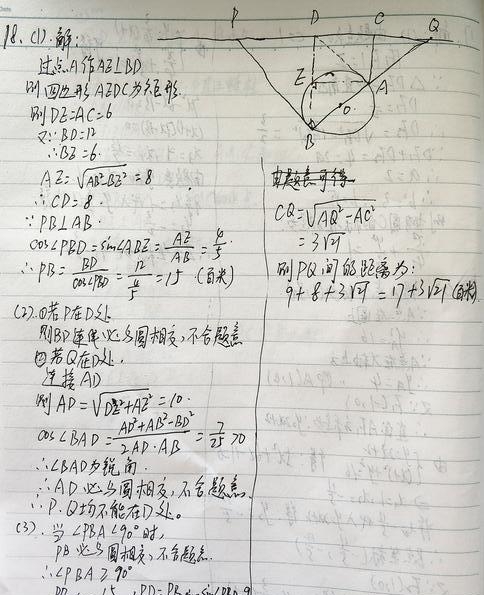 18. (1).解:
过点A作AE⊥BD
则四边形AEDC为矩形.
则DE=AC=6
又∵BD=12
∴BE=6.
AE=√AB²-BE²=8
∴CD=8
∵PB⊥AB.
cos∠PBD=sin∠ABE=AE/AB=4/5.
∴PB=BD/cos∠PBD=12/(4/5)=15 (百米)
(2).①若P在D处
则BD连坐必与圆相交,不合题意
②若Q在D处.
连接AD
则AD=√DE²+AE²=10.
cos∠BAD=AD²+AB²-BD²/2AD·AB=7/25>0
∴∠BAD为锐角.
∴AD必与圆相交,不合题意.
∴P.Q均不能在D处。
(3).当∠PBA<90°时,
PB必与圆相交,不合题意.
∴∠PBA≥90°
P D C Q
E A
O
B
由题意可得
CQ=√AQ²-AC²
=3√21
则PQ间的距离为:
9+8+3√21=17+3√21(百米)